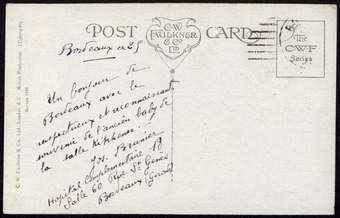 POST CARD
C.W. FAULKNER & Co. Ltd.
The C.W.F. Series
Bordeaux
Un bonjour de
Bordeaux avec le
respectueux et reconnaissant
souvenir de l'ancien baby de
la salle Kitchener.
Jos. Brunier
Hopital complementaire 18
Salle 60 Rue St Genès
Bordeaux (Gironde)
C. W. Faulkner & Co. Ltd., London, E.C. British Production (Copyright)
Series